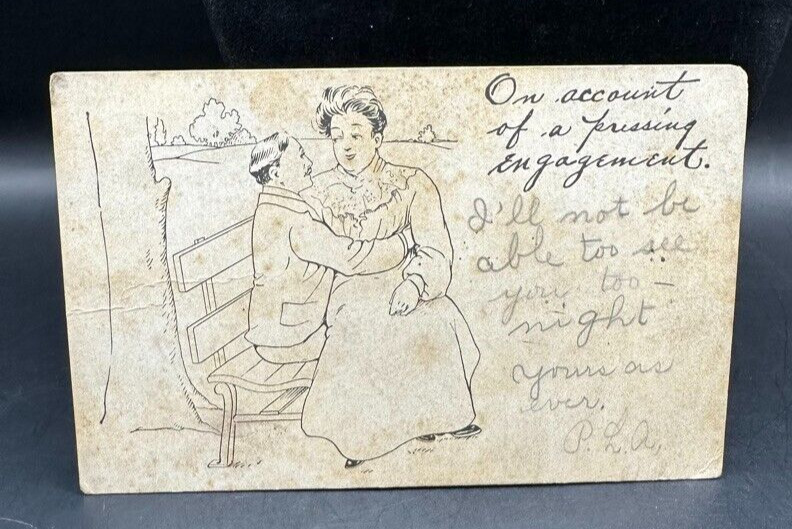 On account
of a pressing
engagement.
I'll not be
able too see
you too-
night
yours as
ever.
P. L. A.